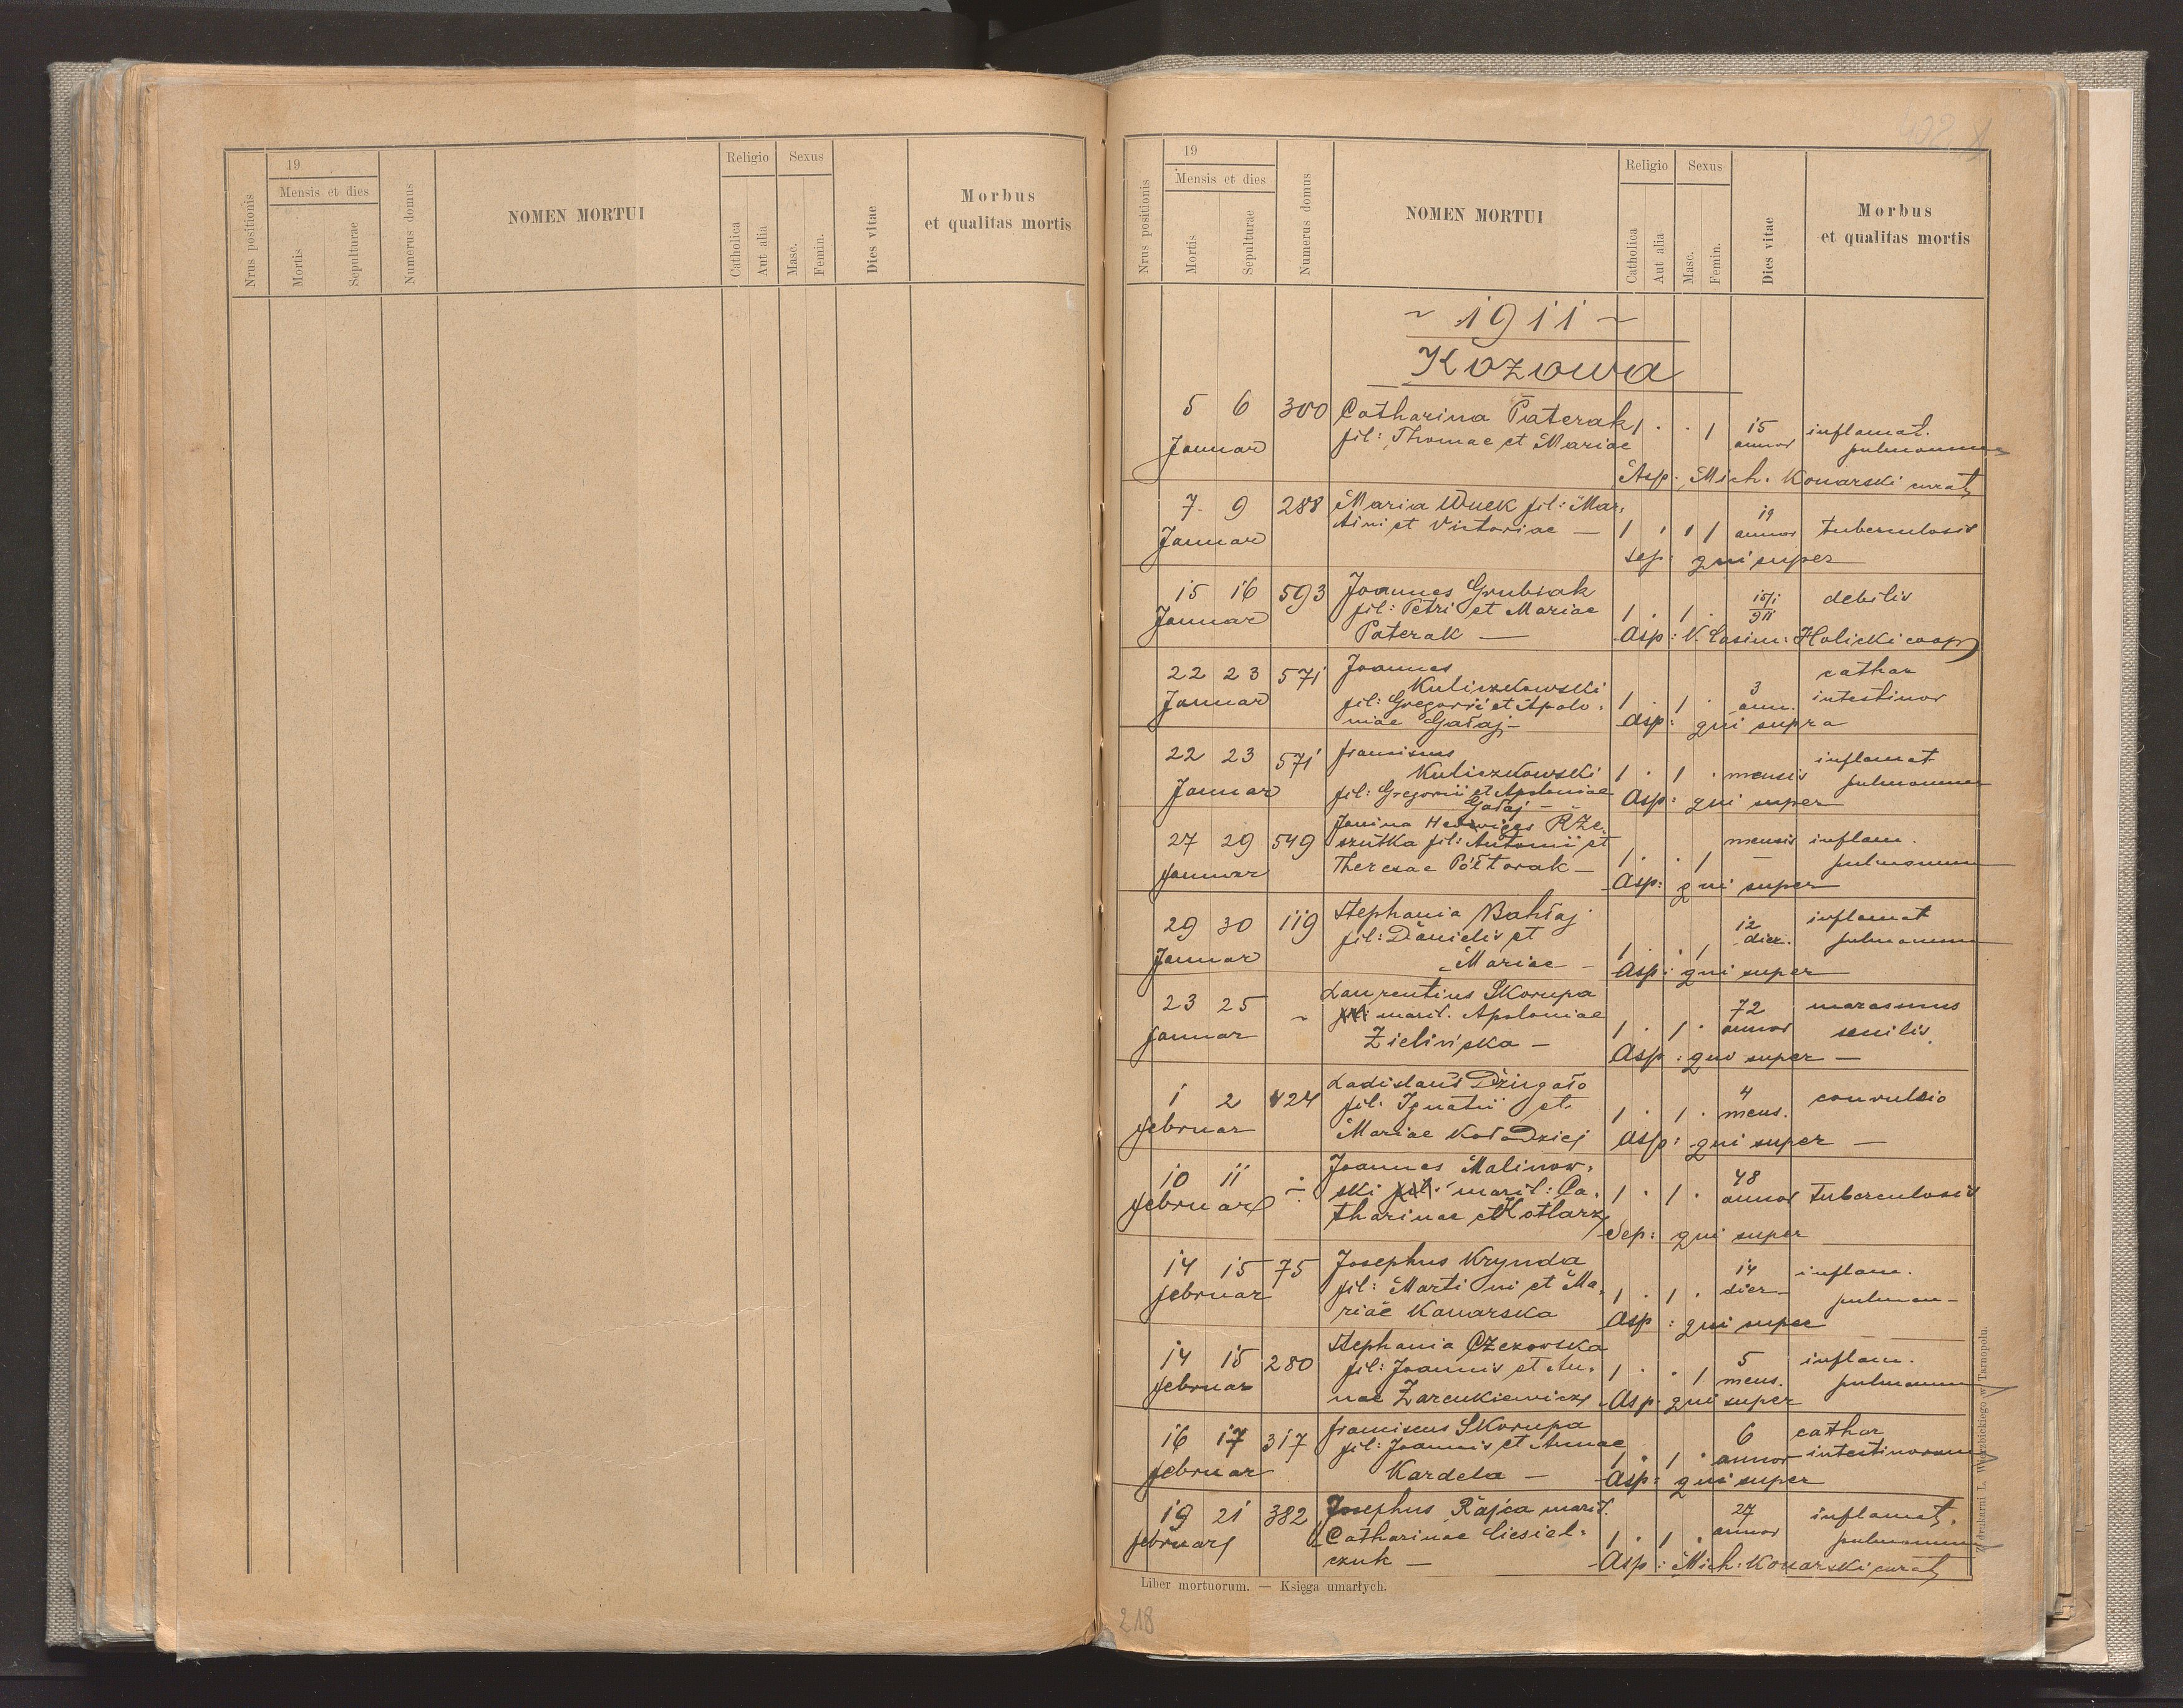 19
Mensis et dies
Nrus positionis
Mortis
Sepulturae
Numerus domus
NOMEN MORTUI
Religio
Catholica
Aut alia
Sexus
Masc.
Femin.
Dies vitae
Morbus
et qualitas mortis
19
Mensis et dies
Nrus positionis
Mortis
Sepulturae
Numerus domus
NOMEN MORTUI
Religio
Catholica
Aut alia
Sexus
Masc.
Femin.
Dies vitae
Morbus
et qualitas mortis
~ 1911 ~
Kozowa
5 6 300 Catharina Paterak 1 . . 1 15 inflamat.
Januar fil: Thomae et Mariae annor pulmonum
Asp. Mich. Konarski curat
7 9 288 Maria Wuek fil: Mar- 19
Januar tini et Victoriae — 1 . 1 annor tuberculosis
sep: qui super
15 16 593 Joannes Grubiak 15/1 debilis
Januar fil: Petri et Mariae 1 . 1 . 911
Paterak — Asp: V. Casim: Holicki coop
22 23 571 Joannes cathar
Kuliczkowski 3 intestinor
Januar fil: Gregorii et Apolo- 1 . 1 . ann.
niae Gałaj — Asp: qui supra
22 23 571 Franciscus inflamat
Kuliczkowski 1 . 1 . mensis pulmonum
Januar fil: Gregorii et Apoloniae Asp: qui super
Gałaj —
Janina Hedwiges Rze-
27 29 549 szutka fil: Antonii et mensis inflam.
Januar Theresae Półtorak — 1 . . 1 — pulmonum
Asp: qui super
29 30 119 Stephania Bahłaj 12 inflamat
fil: Danielis et dier. pulmonum
Januar Mariae — 1 . . 1
Asp: qui super
23 25 ~ Laurentius Skorupa 72 marasmus
Januar marit. Apoloniae 1 . 1 . annor senilis
Zielińska — Asp: qui super —
1 2 424 Ladislaus Dżugało 4 convulsio
fil: Ignatii et 1 . 1 . mens.
Februar Mariae Kołodziej Asp: qui super —
10 11 ÷ Joannes Malinow- 48
Februar ski marit: Ca- 1 . 1 . annor tuberculosis
tharinae Kotlarz
Sep: qui super
14 15 75 Josephus Krynda 14 inflam.
Februar fil: Martini et Ma- 1 . 1 . dier — pulmon —
riae Konarska Asp: qui super
14 15 280 Stephania Czekowska 5 inflam.
fil: Joannis et An- 1 . . 1 mens. pulmonum
Februar nae Zarcukiewicz Asp. qui super
16 17 317 Franciscus Skorupa 6 cathar
fil: Joannis et Annae 1 . 1 . annor intestinorum
Februar Kardela — Asp: qui super
19 21 382 Josephus Rajca marit. 27 inflamat.
Februar Catharinae Ciesiel- 1 . 1 . annor pulmonum
czuk — Asp: Mich: Konarski curat
Liber mortuorum. — Księga umarłych.
Z drukarni L. Wierzbickiego w Tarnopolu.
218